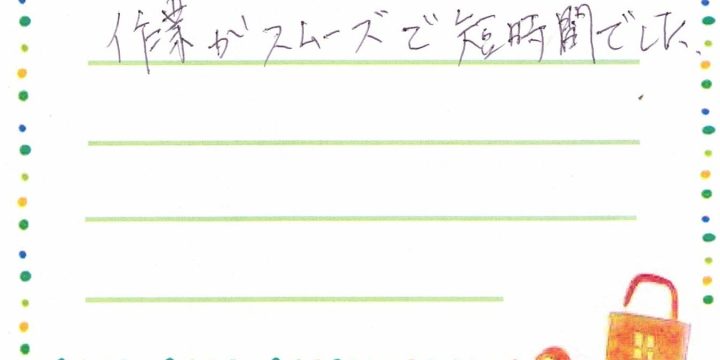 作業がスムーズで短時間でした、